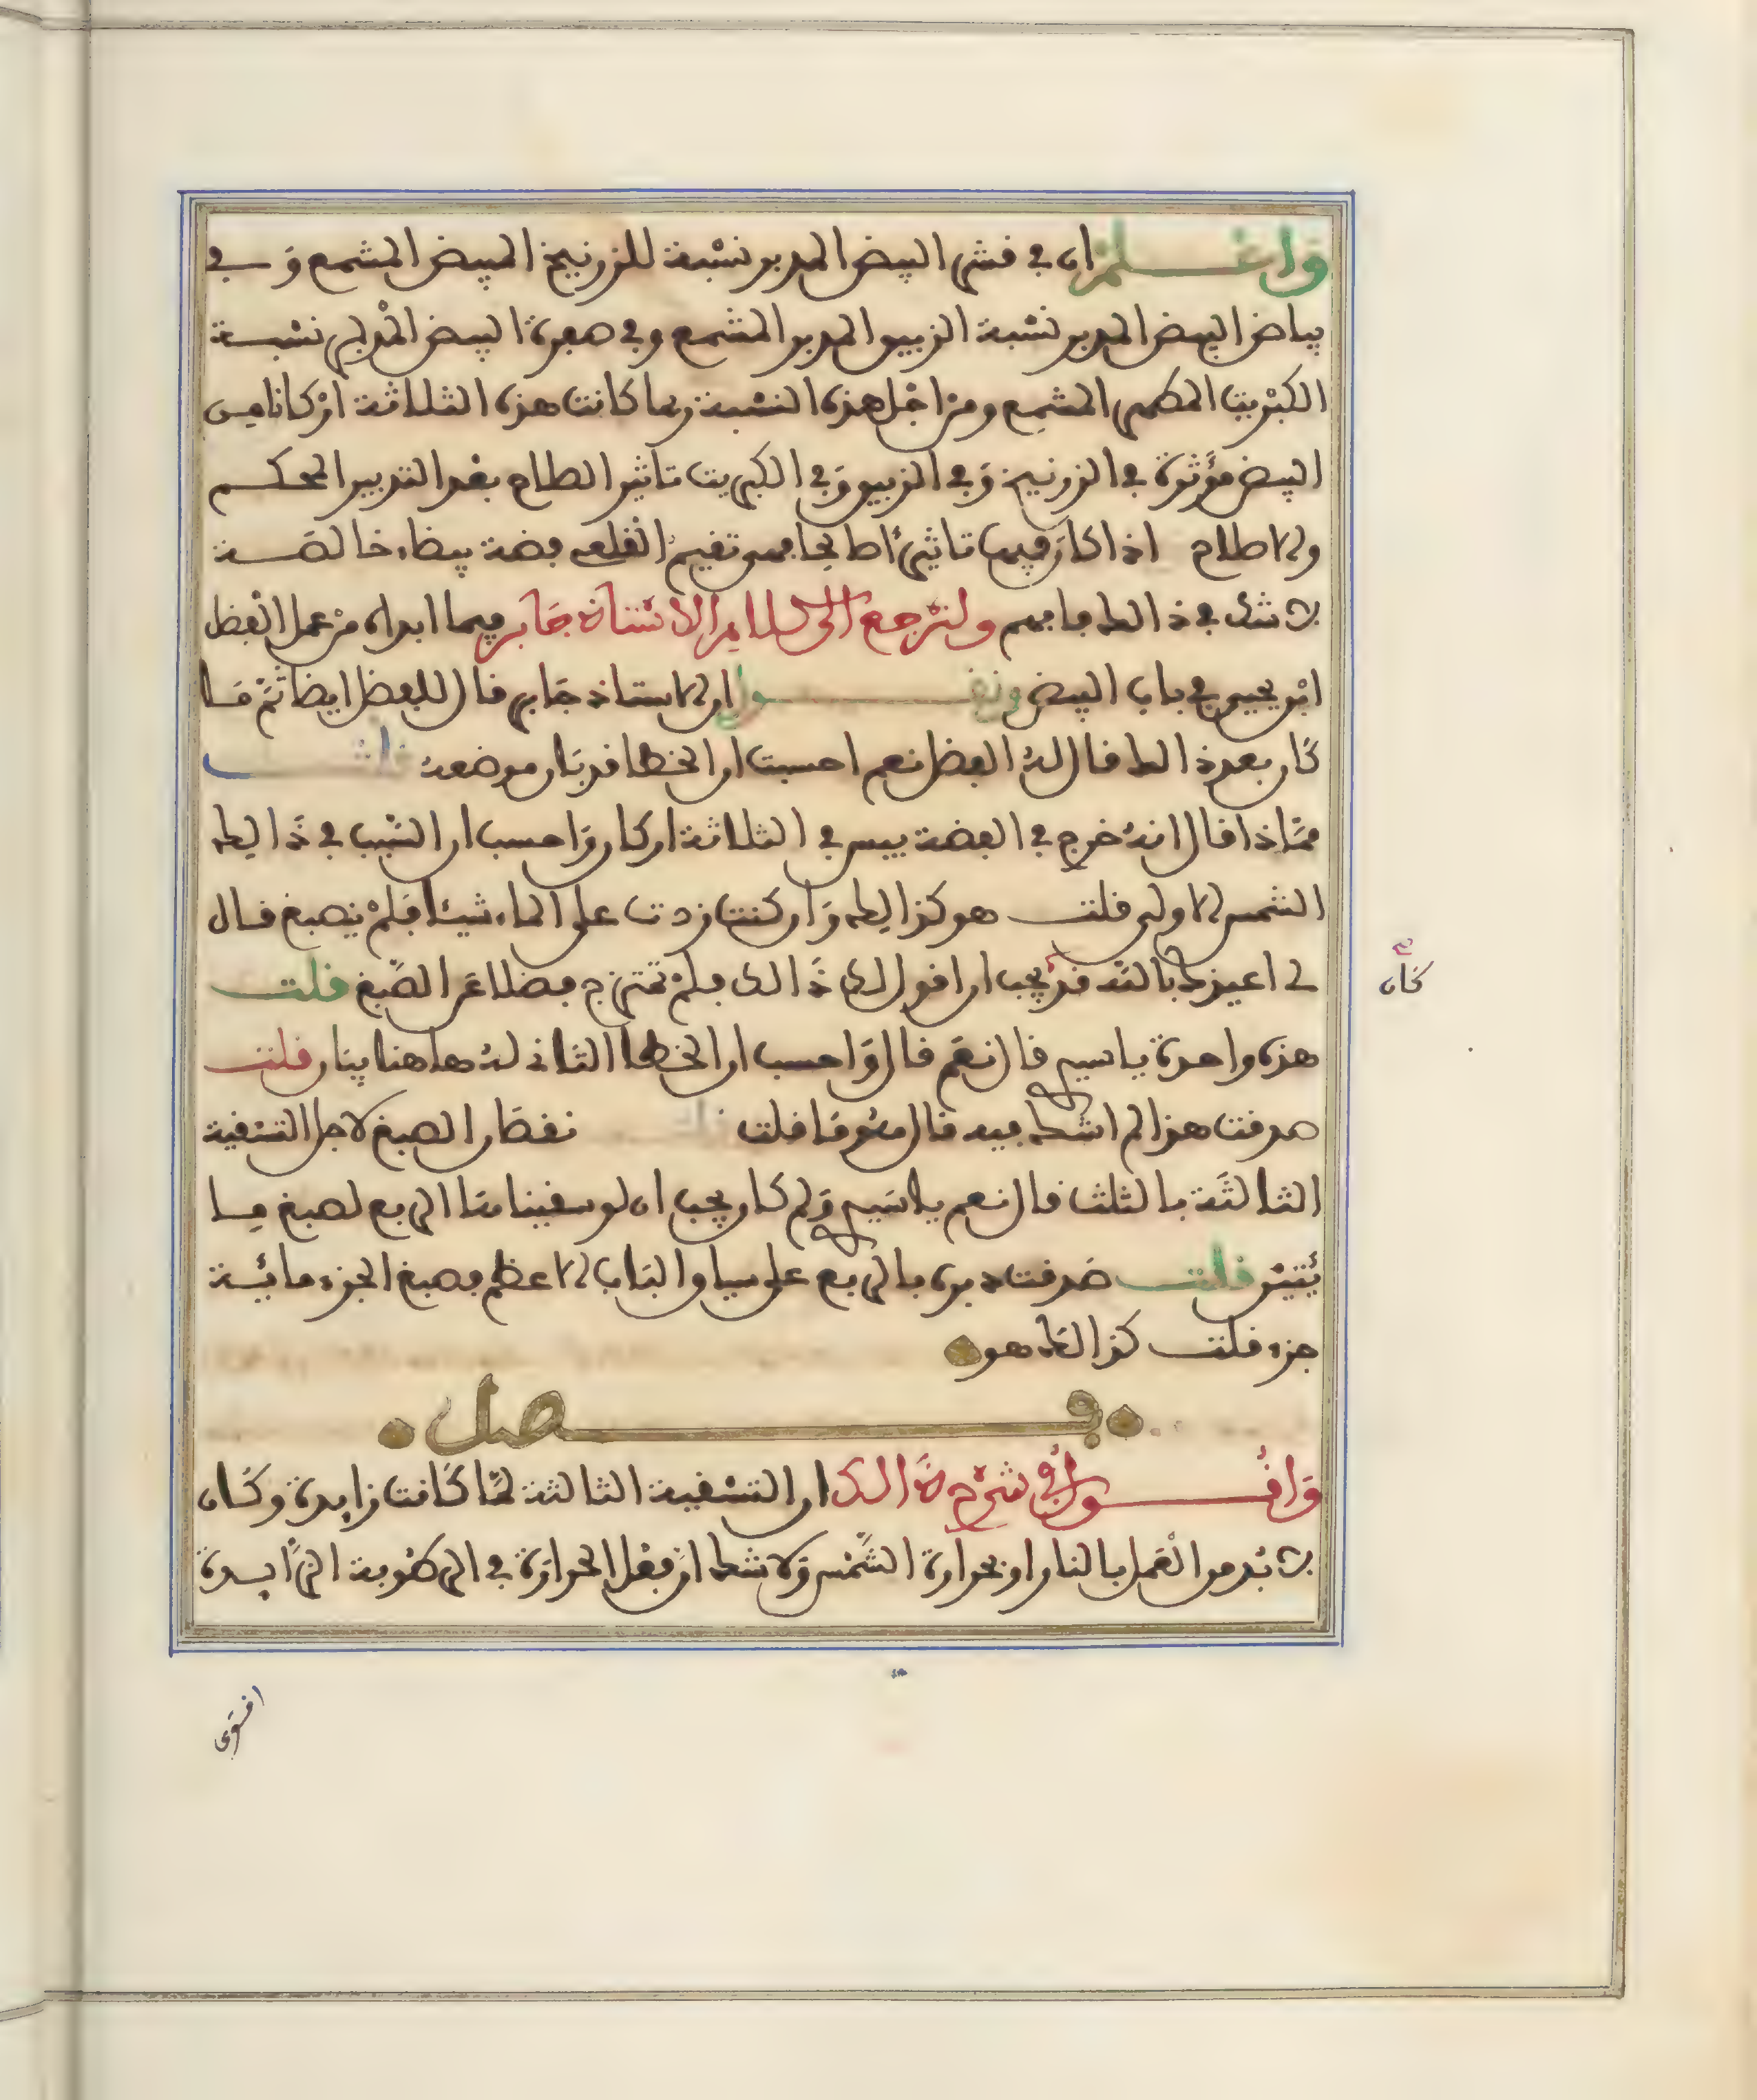 واعلم ان في قشر البيض المدبر نسبة للزرنيخ المبيض المشمع وفي
بياض البيض المدبر نسبة الزيبق المدبر المشمع وفي صفرة البيض المدبر نسبة
الكبريت المطهر المشمع ومن اجل هذه النسبة ربما كانت هذه الثلاثة اركانا من
البيض مؤثرة في الزرنيخ وفي الزيبق وفي الكبريت تاثير الصلاح بعد التدبير المحكم
والاصلاح اذا كان فيها تاثيرا صالحا فهي تقيم القلعي فضة بيضاء خالصة
لا شك في ذالك فافهم ولنرجع الى كلام الاستاذ جابر فيما ابداه من عمل الفضل
ابن يحيى في باب البيض ونقول ان الاستاذ جابر قال للفضل ايضا ثم ما
كان بعد ذالك فقال له الفضل نعم احسبت ان الخطا قد بان موضعه قلت
فماذا قال انه خرج في الفضة يبس في الثلاثة اركان واحسب ان السبب في ذالك
الشمس الاولى قلت هو كذالك وان كنت زدت على الماء شيئا فلم يصبغ قال
لي اعيذك بالله قد يجب ان اقول لك ذالك فلم تمتزج فضلا عن الصبغ قلت
هذه واحدة يا سيدي قال نعم قال واحسب ان الخطا الثاني له هاهنا بنار قلت
صدقت هذا لم اشك فيه قال فلت نقصان الصبغ لاجل التسقية
الثالثة بالثلث قال نعم يا سيدي ولم كان يجب ان لو سقيناها الربع لصبغ ما
يتين قلت صدقت دبره بالربع على سياق الباب الاعظم فصبغ الجزء مائة
جزء قلت كذالك هو
فصل
واقول في شرح ذالك ان التسقية الثالثة لما كانت زايدة وكان
لا بد من العمل بالنار او بحرارة الشمس ولا شك ان فعل الحرارة في الرطوبة الزايدة
كان
اقوى